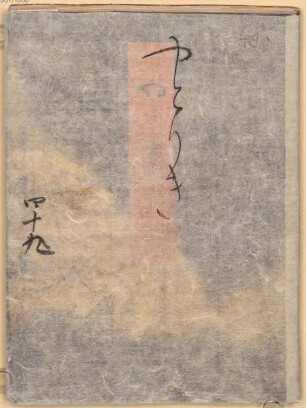 やとりき
四十九